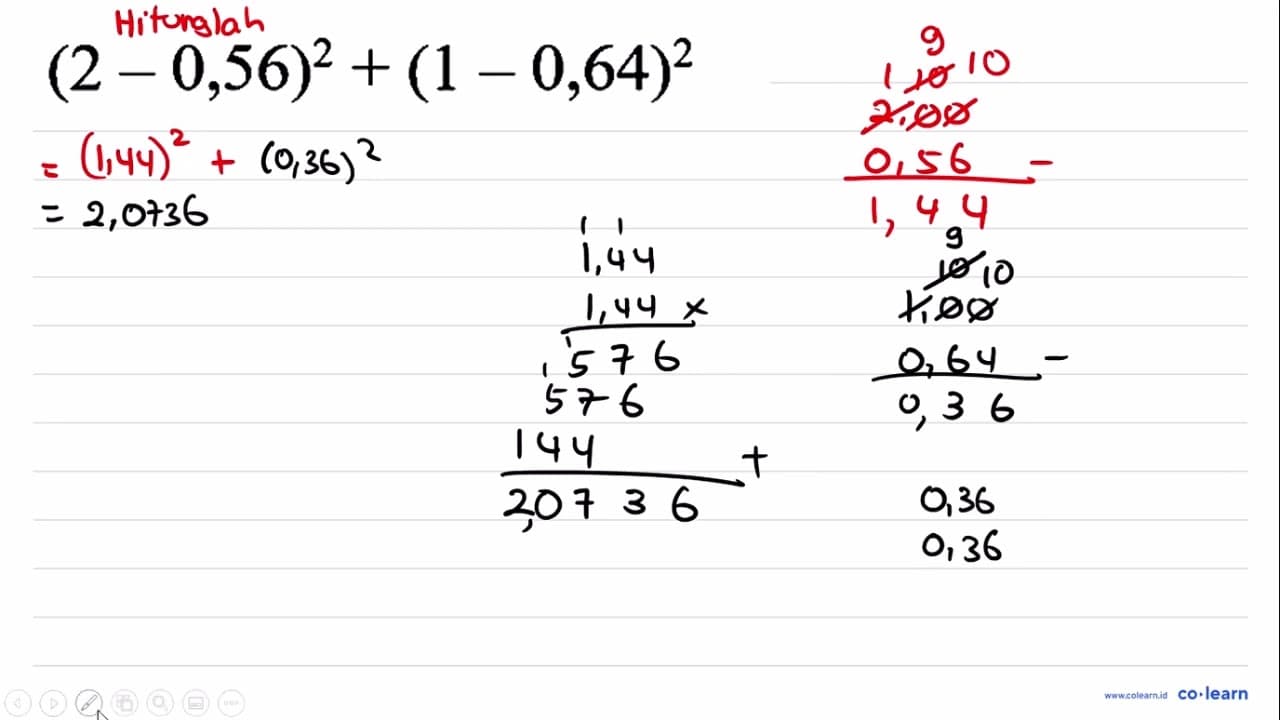 Hitunglah
(2 – 0,56)² + (1 – 0,64)²
= (1,44)² + (0,36)²
= 2,0736
1 1
1,44
1,44 ×
1
1 576
576
144 +
2,0736
9
1 10 10
2,00
0,56 –
1,44
9
10 10
1,00
0,64 –
0,36
0,36
0,36
www.colearn.id co·learn